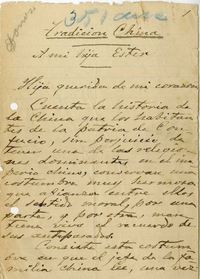 1
Tradicion China
A mi hija Ester
Hija querida de mi corazon
Cuenta la historia de
la China que los habitan-
tes de la patria de Con-
fucio, sin perjuicio
una de las relicio-
nes dominantes en el im-
perio chino, conservan una
costumbre muy hermosa
el sentido moral, por una
parte, y, por otra, man-
tiene vivo el recuerdo de
sus antepasados.
Consiste esta costum-
bre en que el jefe de la fa-
milia China lee, una vez